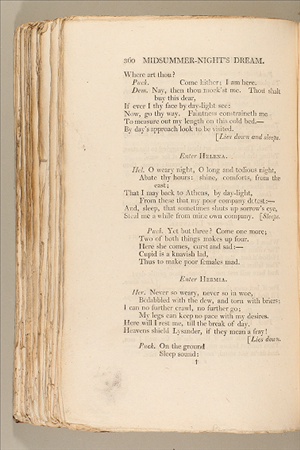 360 MIDSUMMER-NIGHT'S DREAM.
Where art thou?
Puck. Come hither; I am here.
Dem. Nay, then thou mock'st me. Thou shalt
buy this dear,
If ever I thy face by day-light see:
Now, go thy way. Faintness constraineth me
To measure out my length on this cold bed.—
By day's approach look to be visited.
[Lies down and sleeps.
Enter HELENA.
Hel. O weary night, O long and tedious night,
Abate thy hours: shine, comforts, from the
east;
That I may back to Athens, by day-light,
From these that my poor company detest:—
And, sleep, that sometimes shuts up sorrow's eye,
Steal me a while from mine own company. [Sleeps.
Puck. Yet but three? Come one more;
Two of both kinds makes up four.
Here she comes, curst and sad:—
Cupid is a knavish lad,
Thus to make poor females mad.
Enter HERMIA.
Her. Never so weary, never so in woe,
Bedabbled with the dew, and torn with briers;
I can no further crawl, no further go;
My legs can keep no pace with my desires.
Here will I rest me, till the break of day.
Heavens shield Lysander, if they mean a fray!
[Lies down.
Puck. On the ground
Sleep sound: